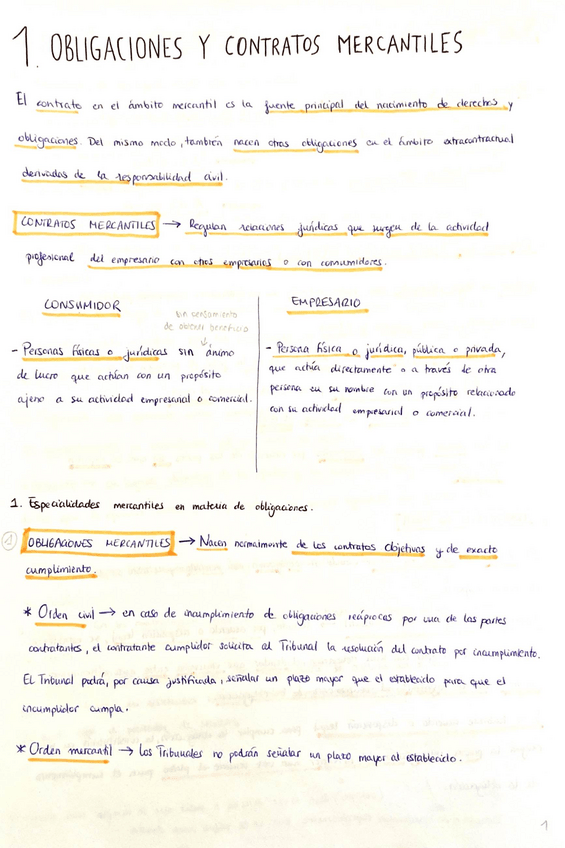 1. OBLIGACIONES Y CONTRATOS MERCANTILES
El contrato en el ámbito mercantil es la fuente principal del nacimiento de derechos y
obligaciones. Del mismo modo, también nacen otras obligaciones en el ámbito extracontractual
derivadas de la responsabilidad civil.
CONTRATOS MERCANTILES → Regulan relaciones jurídicas que surgen de la actividad
profesional del empresario con otros empresarios o con consumidores.
CONSUMIDOR
sin
de obtener beneficio
- Personas físicas o jurídicas sin ánimo
de lucro que actúan con un propósito
ajeno a su actividad empresarial o comercial.
EMPRESARIO
- Persona física o jurídica, pública o privada,
que actúa directamente o a través de otra
persona en su nombre con un propósito relacionado
con su actividad empresarial o comercial.
1. Especialidades mercantiles en materia de obligaciones.
1 OBLIGACIONES MERCANTILES → Nacen normalmente de los contratos objetivas y de exacto
cumplimiento.
* Orden civil → en caso de incumplimiento de obligaciones recíprocas por una de las partes
contratantes, el contratante cumplidor solicita al Tribunal la resolución del contrato por incumplimiento.
El Tribunal podrá, por causa justificada, señalar un plazo mayor que el establecido para que el
incumplidor cumpla.
* Orden mercantil → los Tribunales no podrán señalar un plazo mayor al establecido.
1